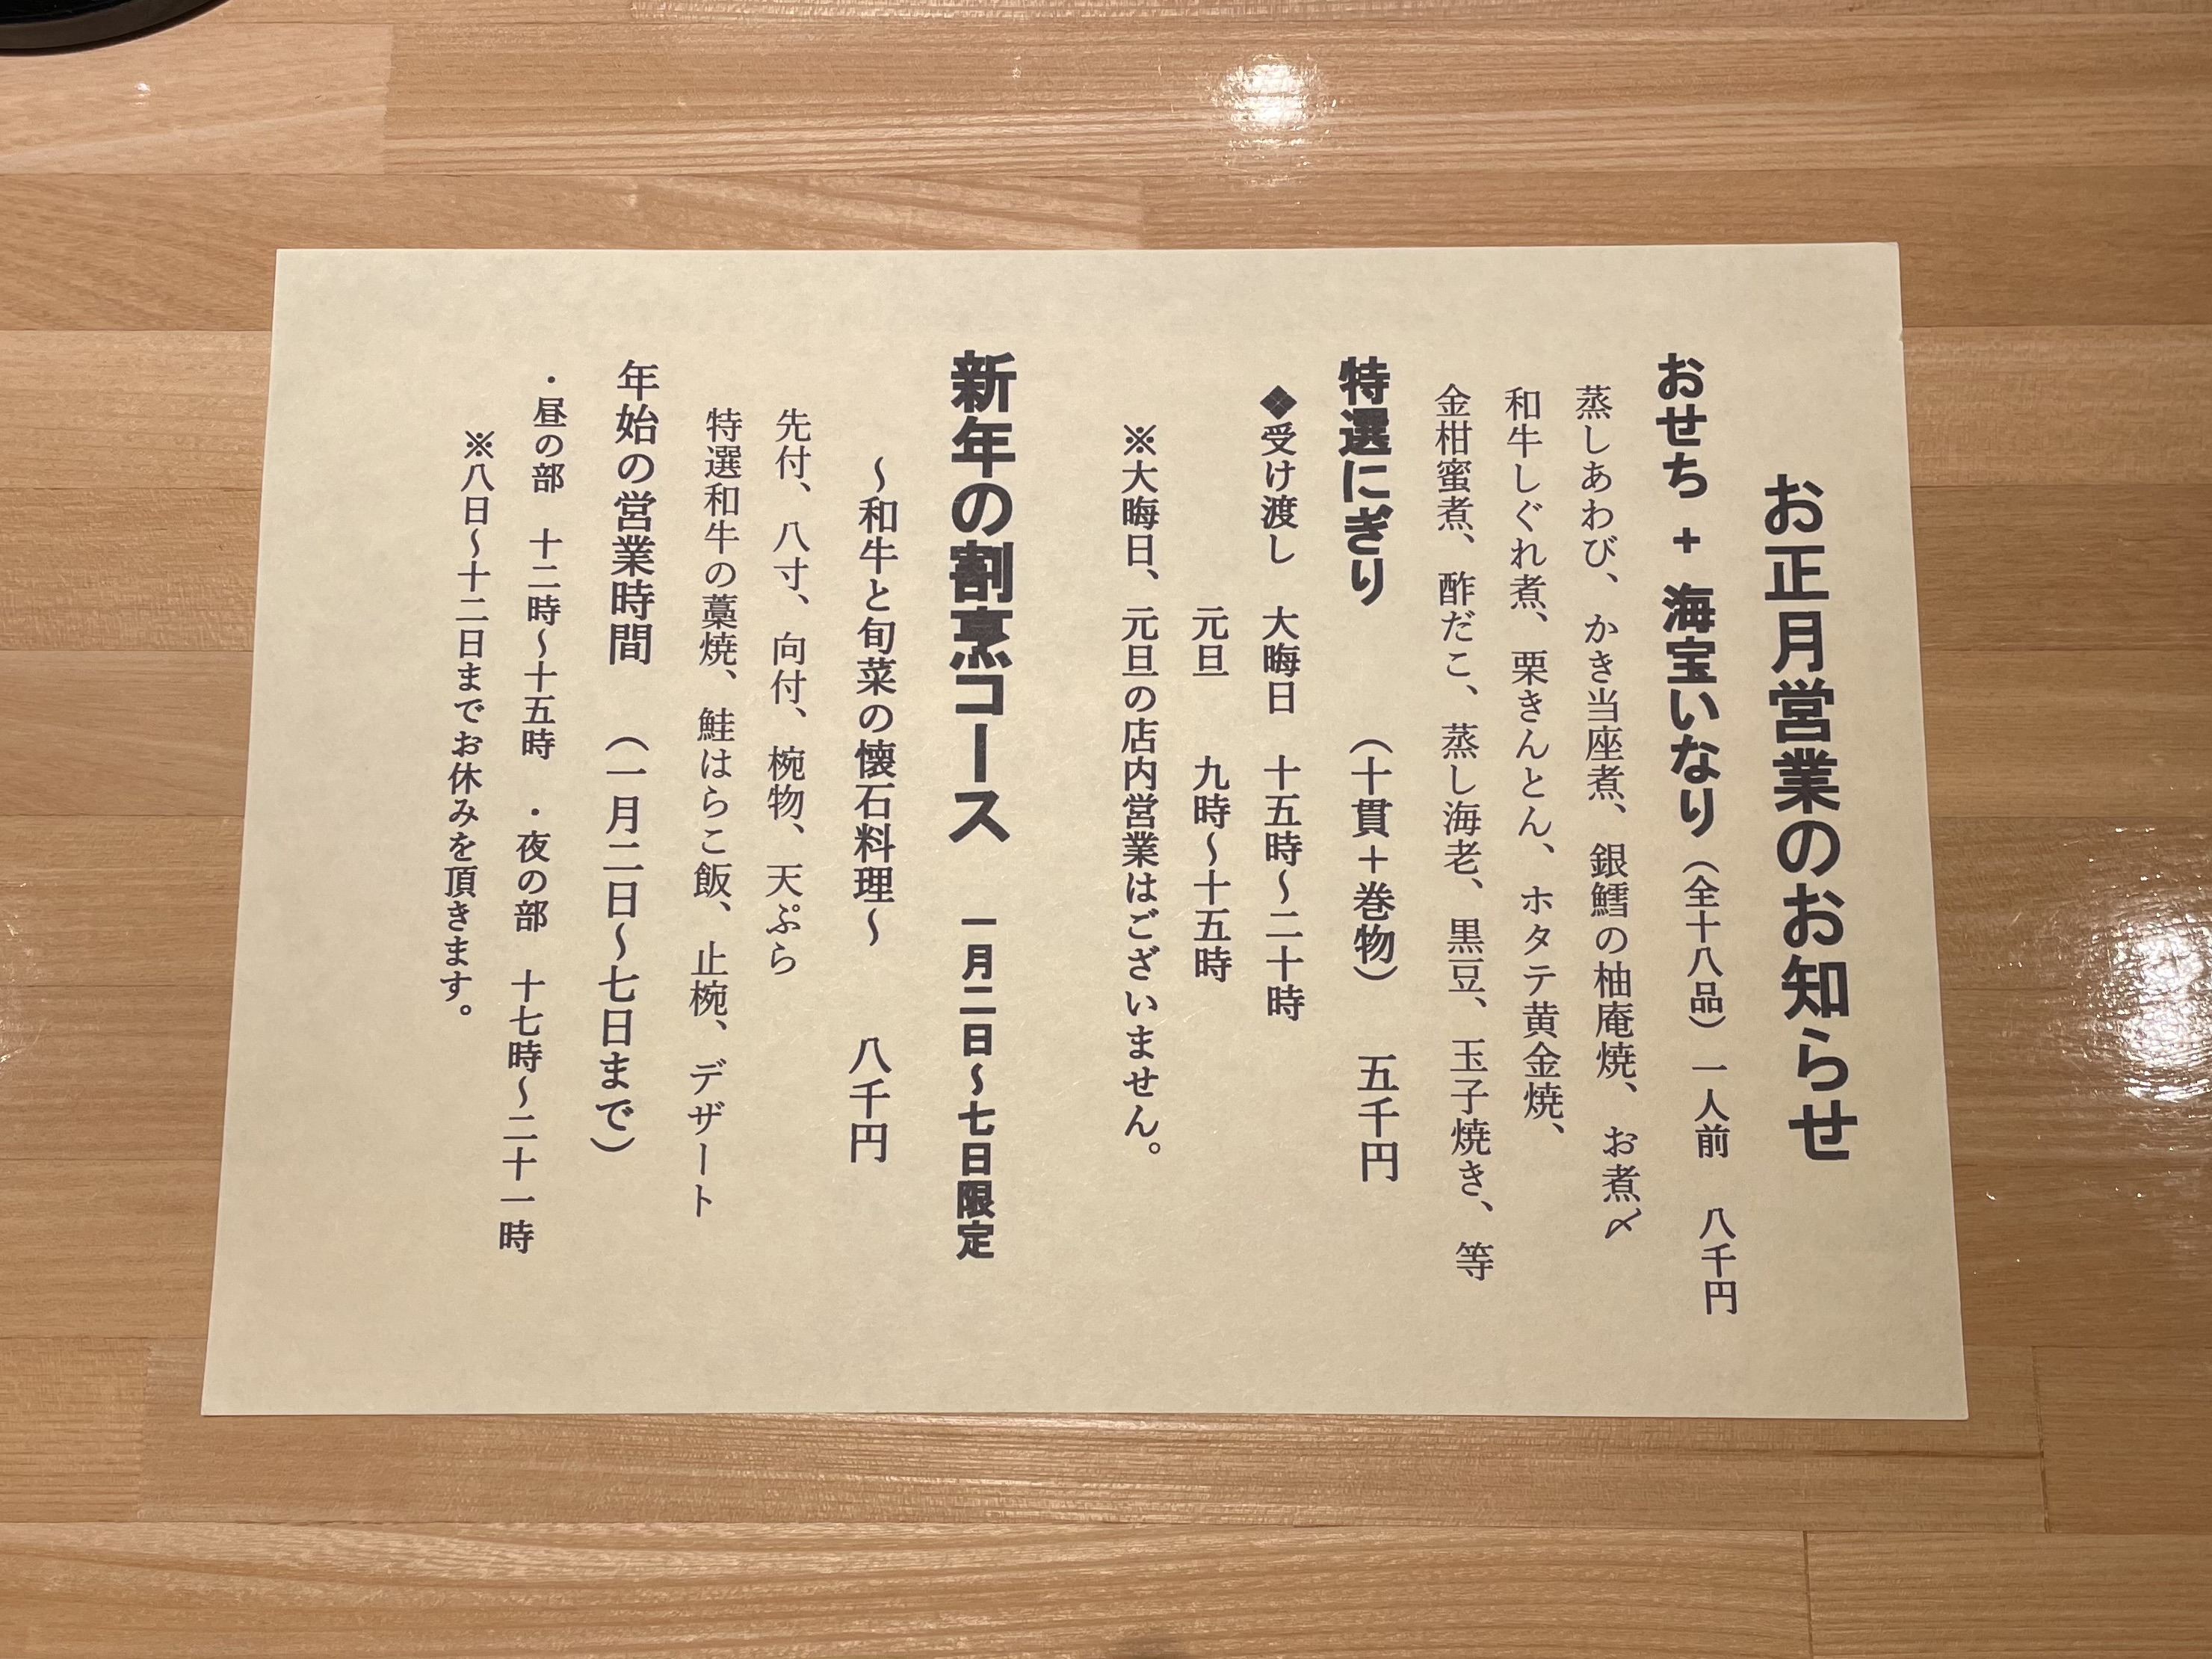 お正月営業のお知らせ
おせち + 海宝いなり（全十八品）一人前　八千円
蒸しあわび、かき当座煮、銀鱈の柚庵焼、お煮〆
和牛しぐれ煮、栗きんとん、ホタテ黄金焼、
金柑蜜煮、酢だこ、蒸し海老、黒豆、玉子焼き、等
特選にぎり　（十貫＋巻物）　五千円
◆受け渡し　大晦日　十五時～二十時
元旦　九時～十五時
※大晦日、元旦の店内営業はございません。
新年の割烹コース　一月二日～七日限定
～和牛と旬菜の懐石料理～　八千円
先付、八寸、向付、椀物、天ぷら
特選和牛の藁焼、鮭はらこ飯、止椀、デザート
年始の営業時間　（一月二日～七日まで）
・昼の部　十二時～十五時　・夜の部　十七時～二十一時
※八日～十二日までお休みを頂きます。